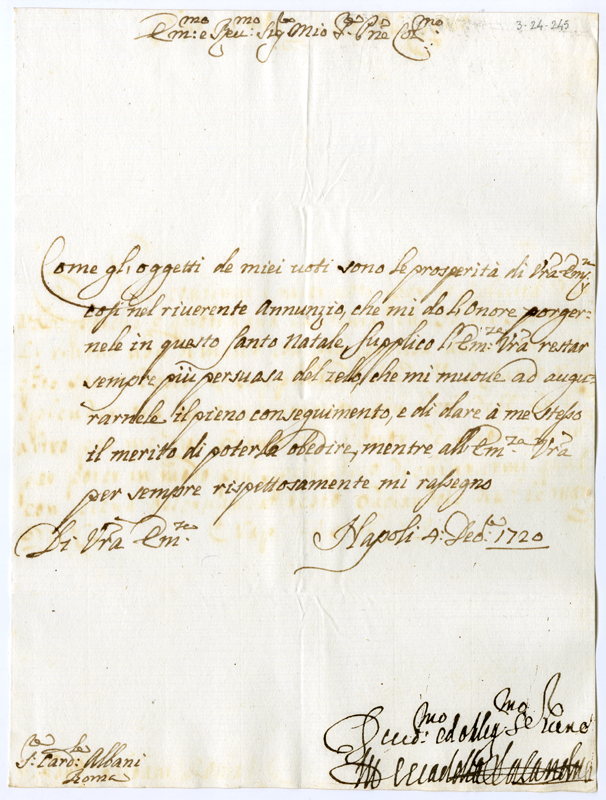 3-24-245
Em:mo e Reu:mo Sig:re Mio S:re Pne Col:mo
Come gl'oggetti de miei uoti sono le prosperità di Vra Em:ze
cosi nel riuerente Annunzio, che mi do l'Onore porger=
nele in questo Santo Natale, supplico l'Em:za Vra restar
sempre più persuasa del zelo, che mi muoue ad augu=
rarnele il pieno conseguimento, e di dare à me stesso
il merito di poterla obedire, mentre all'Em:za Vra
per sempre rispettosamente mi rassegno
Di Vra Em:ze Napoli 4: Xbe: 1720
Deuo:mo ed obblig:mo Se
S:re Card:le Albani
Roma